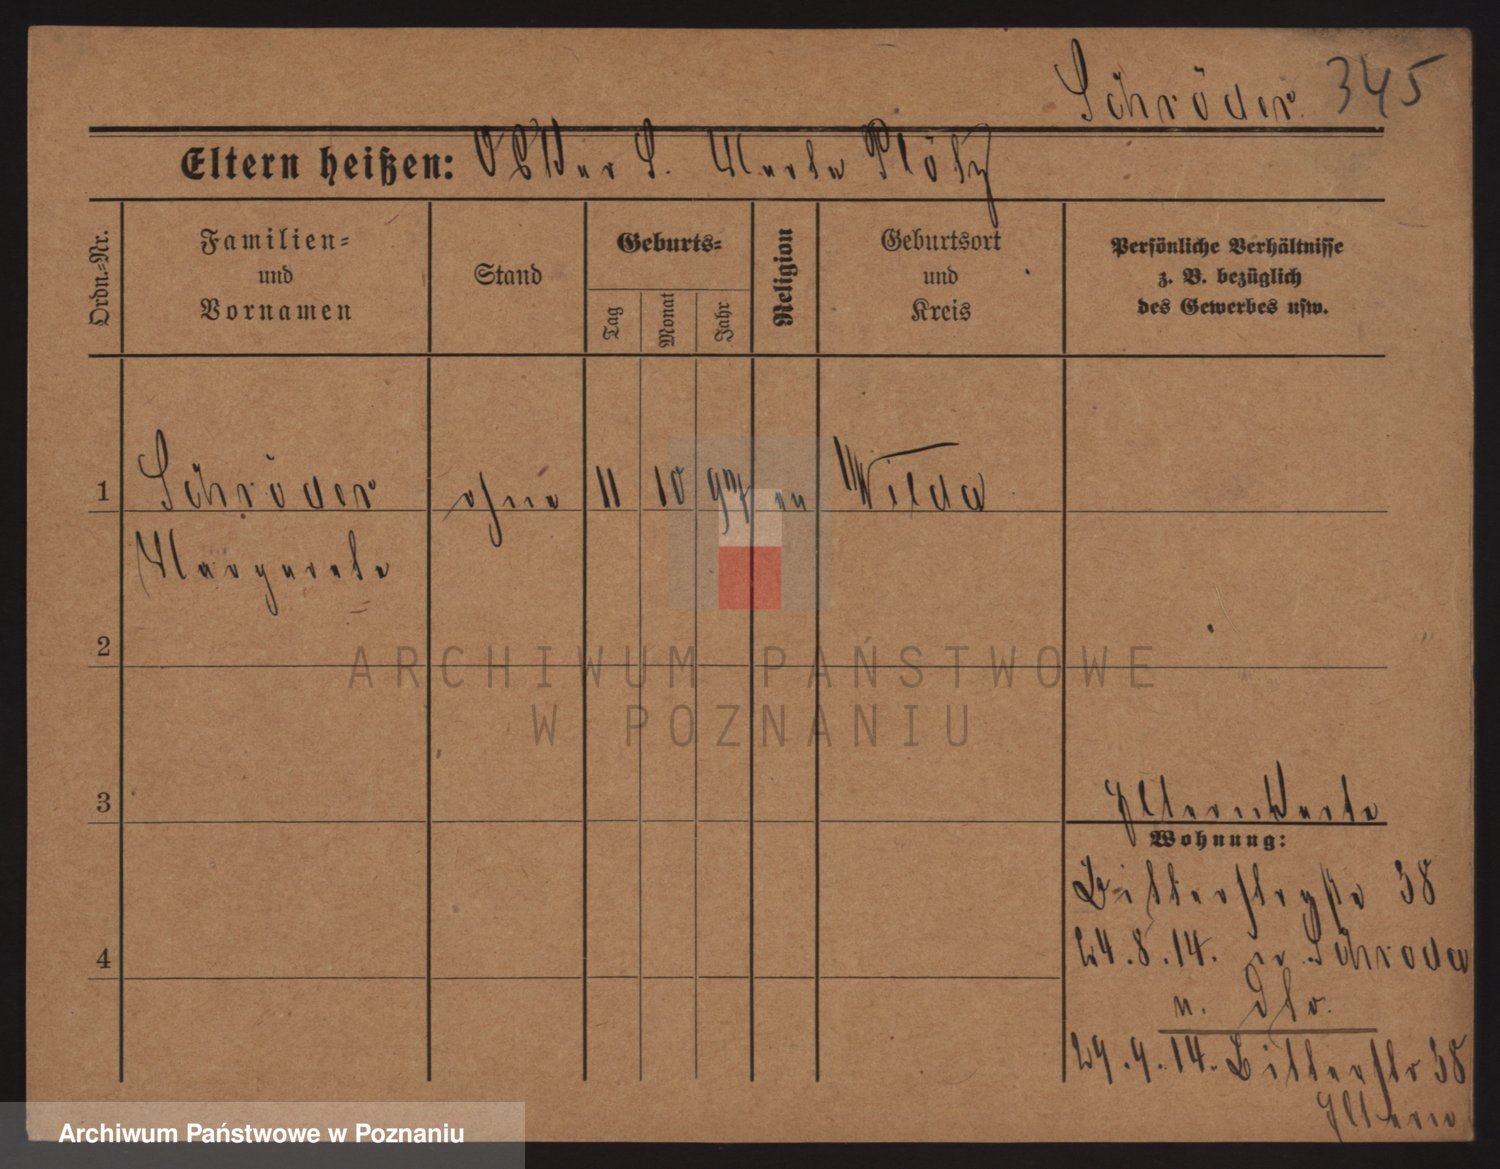 Schröder 345
Eltern heißen: S. Marta Plötz
Ordn.-Nr.
Familien-
und
Vornamen
Stand
Geburts-
Tag
Monat
Jahr
Religion
Geburtsort
und
Kreis
Persönliche Verhältnisse
z. B. bezüglich
des Gewerbes usw.
1 Schröder ohne 11 10 97 ev Wilda
Margarete
2
3
4
Wohnung:
Bitterstraße 38
24.8.14. Schroda
29.9.14. Bitterstr 38
Eltern
ARCHIWUM PAŃSTWOWE
W POZNANIU
Archiwum Państwowe w Poznaniu